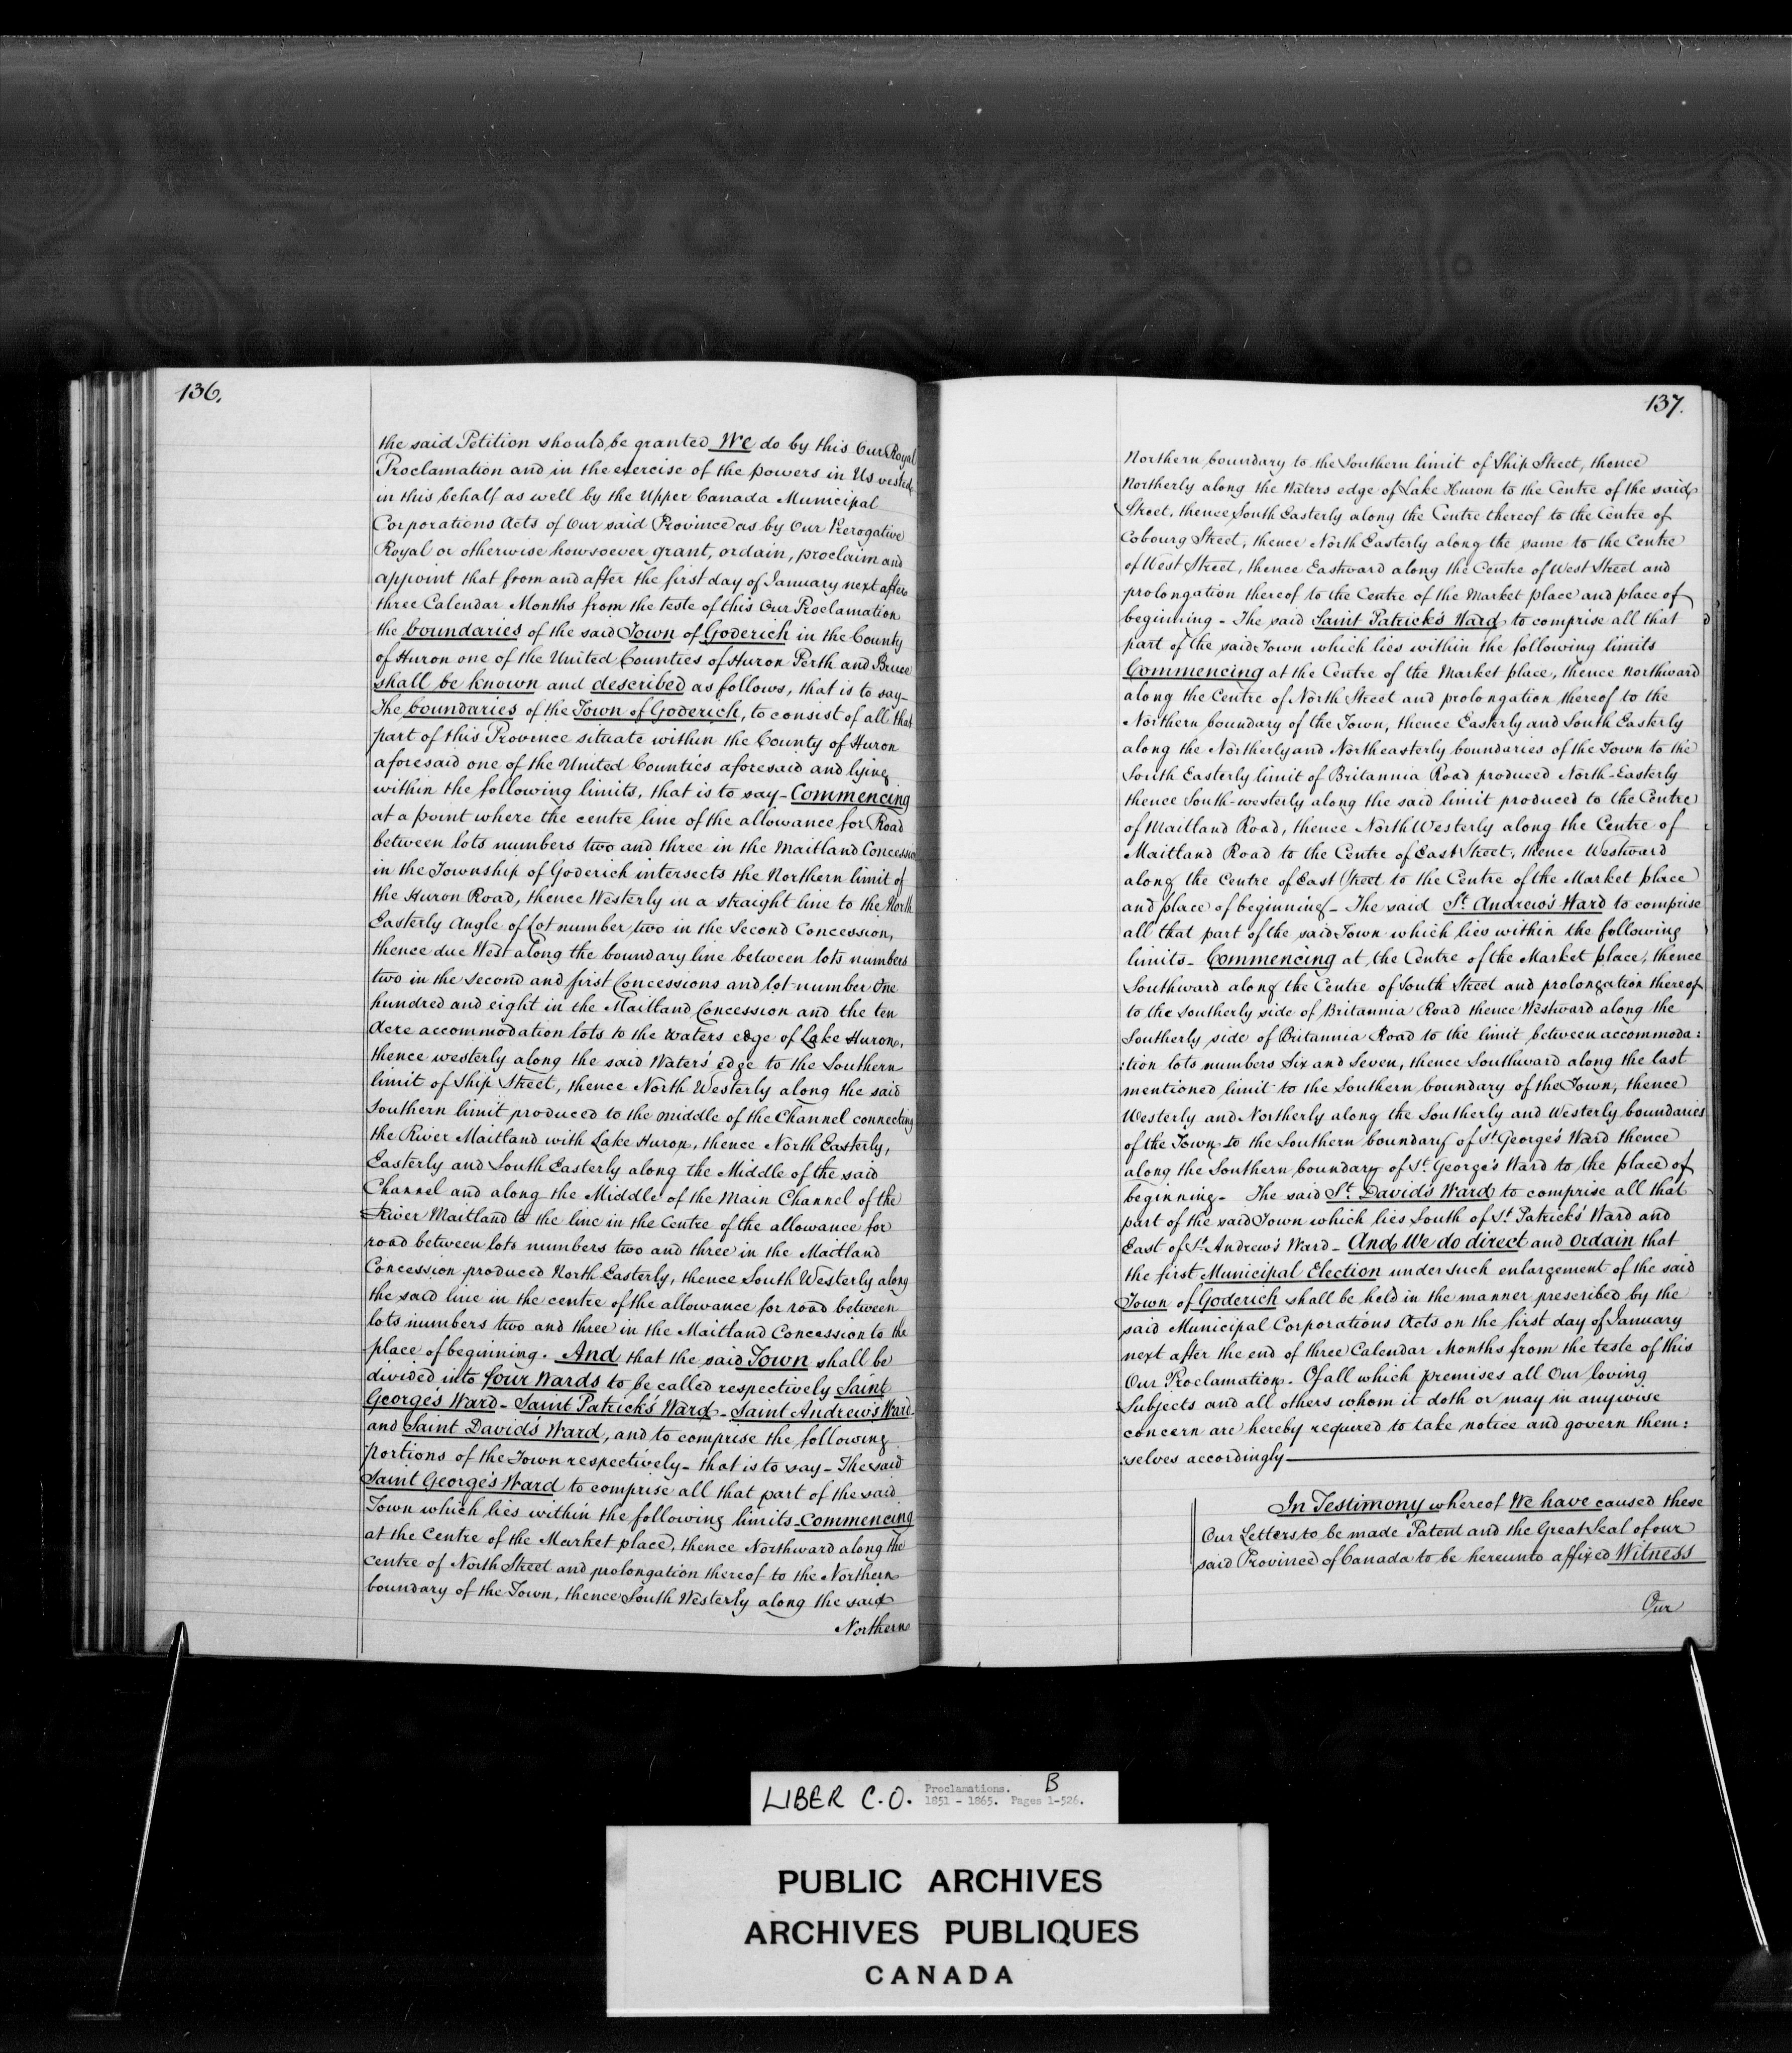 136.
the said Petition should be granted We do by this Our Royal
Proclamation and in the exercise of the powers in Us vested
in this behalf as well by the Upper Canada Municipal
Corporations Acts of Our said Province as by Our Prerogative
Royal or otherwise howsoever grant, ordain, proclaim and
appoint that from and after the first day of January next after
three Calendar Months from the teste of this Our Proclamation
the boundaries of the said Town of Goderich in the County
of Huron one of the United Counties of Huron Perth and Bruce
shall be known and described as follows, that is to say-
The boundaries of the Town of Goderich, to consist of all that
part of this Province situate within the County of Huron
aforesaid one of the United Counties aforesaid and lying
within the following limits, that is to say - Commencing
at a point where the centre line of the allowance for Road
between lots numbers two and three in the Maitland Concession
in the Township of Goderich intersects the Northern limit of
the Huron Road, thence Westerly in a straight line to the North
Easterly Angle of Lot number two in the Second Concession,
thence due West along the boundary line between lots numbers
two in the second and first Concessions and lot number One
hundred and eight in the Maitland Concession and the ten
Acre accommodation lots to the waters edge of Lake Huron,
thence westerly along the said Water's edge to the Southern
limit of Ship Street, thence North Westerly along the said
Southern limit produced to the middle of the Channel connecting
the River Maitland with Lake Huron, thence North Easterly,
Easterly and South Easterly along the Middle of the said
Channel and along the Middle of the Main Channel of the
River Maitland to the line in the Centre of the allowance for
road between lots numbers two and three in the Maitland
Concession produced North Easterly, thence South Westerly along
the said line in the centre of the allowance for road between
lots numbers two and three in the Maitland Concession to the
place of beginning. And that the said Town shall be
divided into four Wards to be called respectively Saint
George's Ward - Saint Patrick's Ward - Saint Andrew's Ward
and Saint David's Ward, and to comprise the following
portions of the Town respectively - that is to say - The said
Saint George's Ward to comprise all that part of the said
Town which lies within the following limits - Commencing
at the Centre of the Market place, thence Northward along the
centre of North Street and prolongation thereof to the Northern
boundary of the Town, thence South Westerly along the said
Northern
137.
Northern boundary to the Southern limit of Ship Street, thence
Northerly along the Waters edge of Lake Huron to the Centre of the said
Street, thence South Easterly along the Centre thereof to the Centre of
Cobourg Street, thence North Easterly along the same to the Centre
of West Street, thence Eastward along the Centre of West Street and
prolongation thereof to the Centre of the Market place and place of
beginning - The said Saint Patrick's Ward to comprise all that
part of the said Town which lies within the following limits
Commencing at the Centre of the Market place, thence northward
along the Centre of North Street and prolongation thereof to the
Northern boundary of the Town, thence Easterly and South Easterly
along the Northerly and Northeasterly boundaries of the Town to the
South Easterly limit of Britannia Road produced North-Easterly
thence South-westerly along the said limit produced to the Centre
of Maitland Road, thence North Westerly along the Centre of
Maitland Road to the Centre of East Street, thence Westward
along the Centre of East Street to the Centre of the Market place
and place of beginning - The said St. Andrew's Ward to comprise
all that part of the said Town which lies within the following
limits - Commencing at the Centre of the Market place, thence
Southward along the Centre of South Street and prolongation thereof
to the Southerly side of Britannia Road thence Westward along the
Southerly side of Britannia Road to the limit between accommoda:
:tion lots numbers Six and Seven, thence Southward along the last
mentioned limit to the Southern boundary of the Town, thence
Westerly and Northerly along the Southerly and Westerly boundaries
of the Town to the Southern boundary of St. George's Ward thence
along the Southern boundary of St. George's Ward to the place of
beginning - The said St. David's Ward to comprise all that
part of the said Town which lies South of St. Patrick's Ward and
East of St. Andrew's Ward - And We do direct and ordain that
the first Municipal Election under such enlargement of the said
Town of Goderich shall be held in the manner prescribed by the
said Municipal Corporations Acts on the first day of January
next after the end of three Calendar Months from the teste of this
Our Proclamation. Of all which premises all Our loving
Subjects and all others whom it doth or may in anywise
concern are hereby required to take notice and govern them:
:selves accordingly
In Testimony whereof We have caused these
Our Letters to be made Patent and the Great Seal of our
said Province of Canada to be hereunto affixed Witness
Our
LIBER C.O. Proclamations. B
1851 - 1865. Pages 1-526.
PUBLIC ARCHIVES
ARCHIVES PUBLIQUES
CANADA